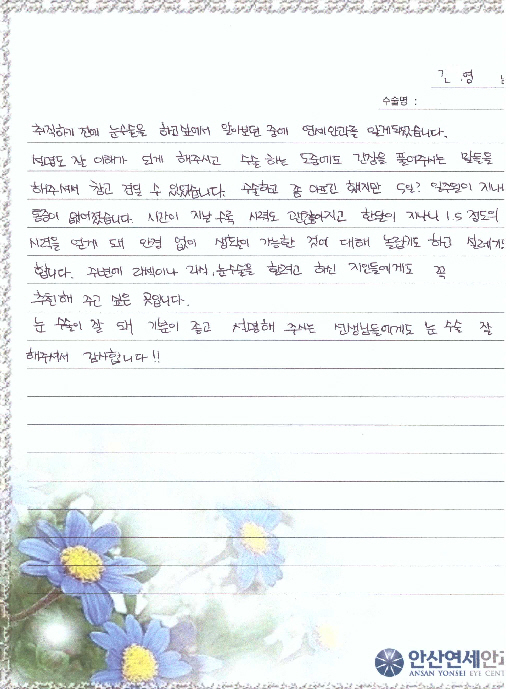 김 영
수술명 :
취직하기 전에 눈수술을 하고싶어서 알아보던 중에 연세안과를 알게되었습니다.
설명도 잘 이해가 되게 해주시고 수술 하는 도중에도 긴장을 풀어주시는 말들을
해주셔서 참고 견딜 수 있었습니다. 수술하고 좀 아프긴 했지만 5일? 일주일이 지나
통증이 없어졌습니다. 시간이 지날수록 시력도 괜찮아지고 한달이 지나니 1.5 정도의
시력을 얻게 돼 안경 없이 생활이 가능한 것에 대해 놀랍기도 하고 설레기
합니다. 주변에 라섹이나 라식, 눈수술을 할려고 하신 지인들에게도 꼭
추천해 주고 싶은 곳입니다.
눈 수술이 잘 돼 기분이 좋고 설명해 주시는 선생님들에게도 눈 수술 잘
해주셔서 감사합니다!!
안산연세안과
ANSAN YONSEI EYE CENT